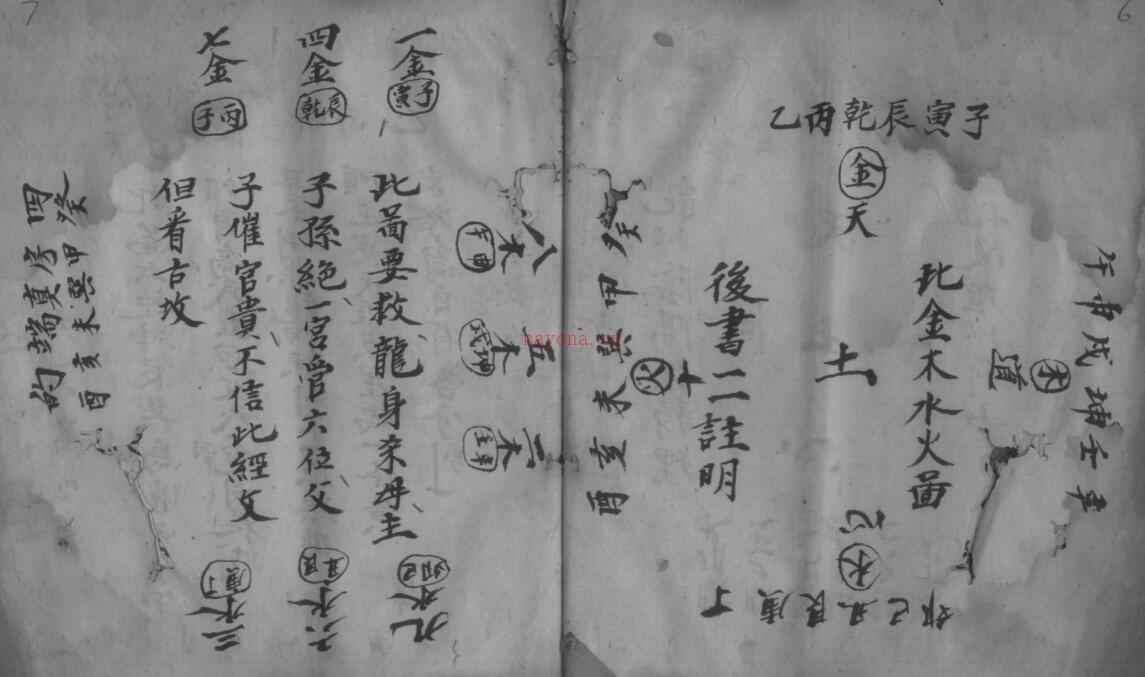 6
子寅辰乾丙乙
金
天
午申戌坤壬辛
木
道
此金木水火啚
土
後書二註明
水
卯巳丑艮庚丁
火
癸甲巽未亥酉
7
一金
子寅
四金
辰乾
七金
丙子
此啚要救龍身
子孫絶一宮管六位父
子催官貴不信此經文
但看古坟
八木
五木
二木
九水
卯巳
六水
丑艮
三水
庚丁
癸甲巽未亥酉
的端真
nayona.ru